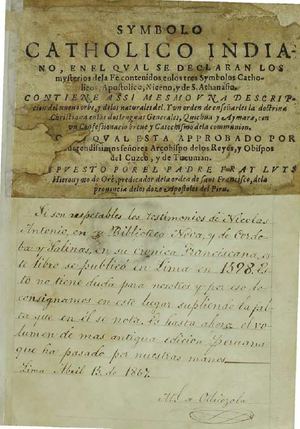 SYMBOLO
CATHOLICO INDIA-
NO, EN EL QVAL SE DECLARAN LOS
mysterios dela Fé contenidos enlos tres Symbolos Catho-
licos, Apostolico, Niceno, y de S. Athanasio.
CONTIENE ASSI MESMO VNA DESCRIP-
cion del nuevo orbe, y delos naturales del. Y vn orden de enseñarles la doctrina
Christiana enlas dos lenguas Generales, Quichua y Aymara, con
vn Confessionario breve y Catechismo dela communion.
QVAL ESTA APROBADO POR
señores Arçobispo delos Reyes, y Obispos
del Cuzco, y de Tucuman.
PVESTO POR EL PADRE FRAY LVIS
Hieronymo de Oré, predicador dela orden de sant Francisco, dela
provincia delos doze Apostoles del Piru.
Si son respetables los testimonios de Nicolas
Antonio, en su Biblioteca Nova, y de Cordo-
ba y Salinas, en su cronica Franciscana, es
te libro se publicó en Lima en 1598. Es
to no tiene duda para nosotros y por eso lo
consignamos en este lugar supliendo la fal-
ta que en él se nota. Es hasta ahora el vo
lumen de mas antigua edicion Peruana
que ha pasado por nuestras manos.
Lima Abril 15 de 1867.
Ml. de Odriozola